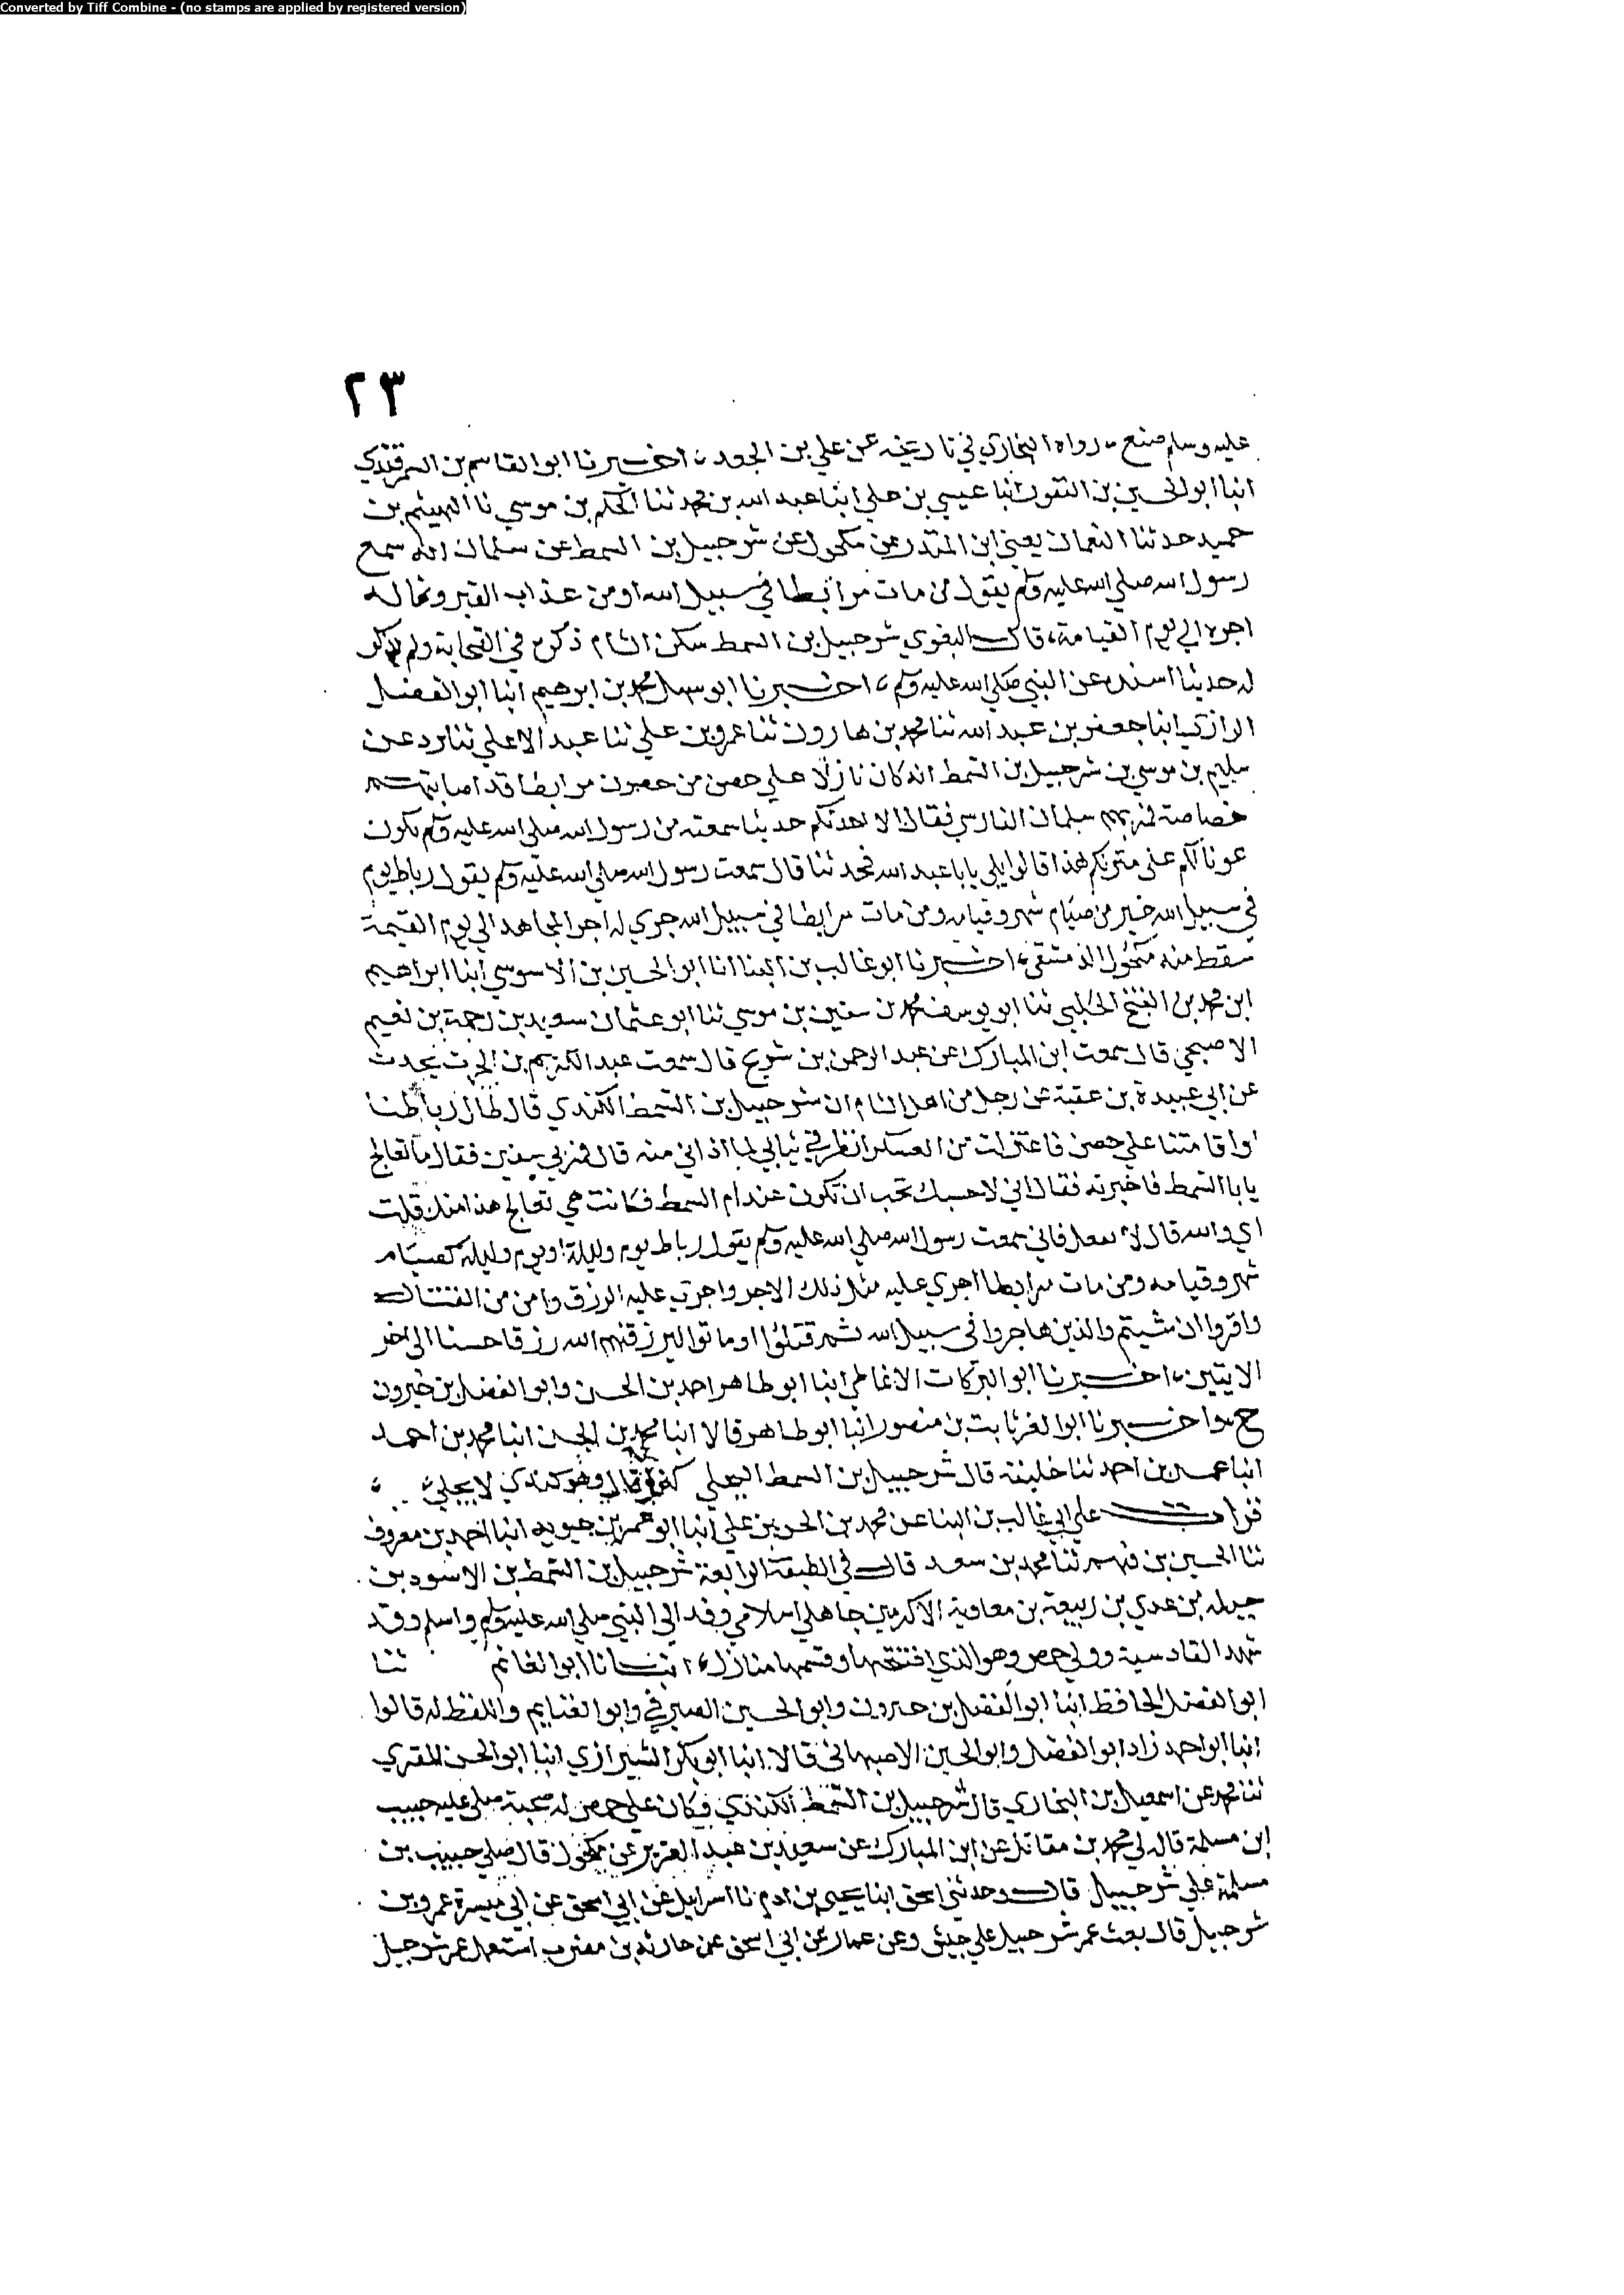 Converted by Tiff Combine - (no stamps are applied by registered version)
٢٣
عليه وسلم صنع، رواه البخاري في تاريخه عن علي بن الجعد، اخبرنا ابو القاسم بن السمرقندي
انبا ابو الحسين بن النقور انبا عيسى بن علي انبا عبد الله بن محمد ثنا الحكم بن موسي نا الهيثم بن
حميد حدثنا النعمان يعني ابن المنذر عن مكحول عن شرحبيل بن السمط عن سلمان انه سمع
رسول الله صلي الله عليه وسلم يقول من مات مرابطا في سبيل الله اومن عذاب القبر ونما له
اجره الي يوم القيامة، قال البغوي شرحبيل بن السمط سكن الشام ذكر في الصحابة ولم يذكر
له حديثا اسنده عن النبي صلي الله عليه وسلم، اخبرنا ابو سهل محمد بن ابرهيم انبا ابو الفضل
الرازي انبا جعفر بن عبد الله ثنا محمد بن هارون ثنا عمرو بن علي ثنا عبد الاعلي ثنا برد عن
سليم بن موسي بن شرحبيل بن السمط انه كان نازلا علي حصن من حصون مرابطا قد اصابتهم
خصاصة فمر بهم سلمان الفارسي فقال الا احدثكم حديثا سمعته من رسول الله صلي الله عليه وسلم يكون
عونا لكم على منزلكم هذا قالوا بلي يابا عبد الله فحدثنا قال سمعت رسول الله صلي الله عليه وسلم يقول رباط يوم
في سبيل الله خير من صيام شهر وقيامه ومن مات مرابطا في سبيل الله جري له اجر المجاهد الي يوم القيمة
سقط منه مكحول الدمشقي، اخبرنا ابو غالب بن البنا انا ابو الحسين بن الابنوسي انبا ابراهيم
ابن محمد بن الفتح الجلبي ثنا ابو يوسف محمد بن سفين بن موسي ثنا ابو عثمان سعيد بن رحمة بن نعيم
الاصبحي قال سمعت ابن المبارك عن عبد الرحمن بن شريح قال سمعت عبد الكريم بن الحرث يحدث
عن ابي عبيدة بن عقبة عن رجل من اهل الشام ان شرحبيل بن السمط الكندي قال طال رباطنا
واقامتنا علي حصن فاعتزلت من العسكر انظر في ثيابي لما اذاني منه قال فمر بي سلمان فقال ما تعالج
يابا السمط فاخبرته فقال اني لاحسبك تحب ان تكون عند ام السمط فكانت هي تعالج هذا منك قلت
اي والله قال لا تفعل فاني سمعت رسول الله صلي الله عليه وسلم يقول رباط يوم وليلة او يوم وليله كصيام
شهر وقيامه ومن مات مرابطا اجري عليه مثل ذلك الاجر واجري عليه الرزق وامن من الفتان
واقروا ان شيتم والذين هاجروا في سبيل الله ثم قتلوا او ماتوا ليرزقنهم الله رزقا حسنا الى اخر
الايتين، اخبرنا ابو البركات الانماطي انبا ابو طاهر احمد بن الحسن وابو الفضل بن خيرون
ح واخبرنا ابو العز ثابت بن منصور انبا ابو طاهر قالا انبا محمد بن الحسن انبا محمد بن احمد
انبا عمر بن احمد ثنا خليفة قال شرحبيل بن السمط البجلي كذا قال وهو كندي لا بجلي،
قرات علي ابي غالب بن البنا عن محمد بن الحسن بن علي انبا ابو عمر بن حيويه انبا احمد بن معروف
ثنا الحسين بن فهم ثنا محمد بن سعد قال في الطبقة الرابعة شرحبيل بن السمط بن الاسود بن
جبله بن عدي بن ربيعة بن معاوية الاكرمين جاهلي اسلامي وفد الى النبي صلي الله عليه وسلم واسلم وقد
شهد القادسية وولي حمص وهو الذي افتتحها وقسمها منازل، انبانا ابو الغانم ثنا
ابو الفضل الحافظ انبا ابو الفضل بن خيرون وابو الحسين الصيرفي وابو الغنايم واللفظ له قالوا
انبا ابو احمد زاد ابو الفضل وابو الحسين الاصبهاني قالا انبا ابو بكر الشيرازي انبا ابو الحسن المقري
ثنا محمد بن اسمعيل بن البخاري قال شرحبيل بن السمط الكندي وكان علي حمص له صحبة صلى عليه حبيب
ابن مسلمة قال لي محمد بن مقاتل عن ابن المبارك عن سعيد بن عبد العزيز عن مكحول قال صلي حبيب بن
مسلمة علي شرحبيل قال وحدثني اسحق انبا يحيى بن ادم نا اسرايل عن ابي اسحق عن ابي ميسرة عمرو بن
شرحبيل قال بعث عمر شرحبيل علي جيش وعن عمار عن ابي اسحق عن حارثه بن مضرب استعمل عمر شرحبيل